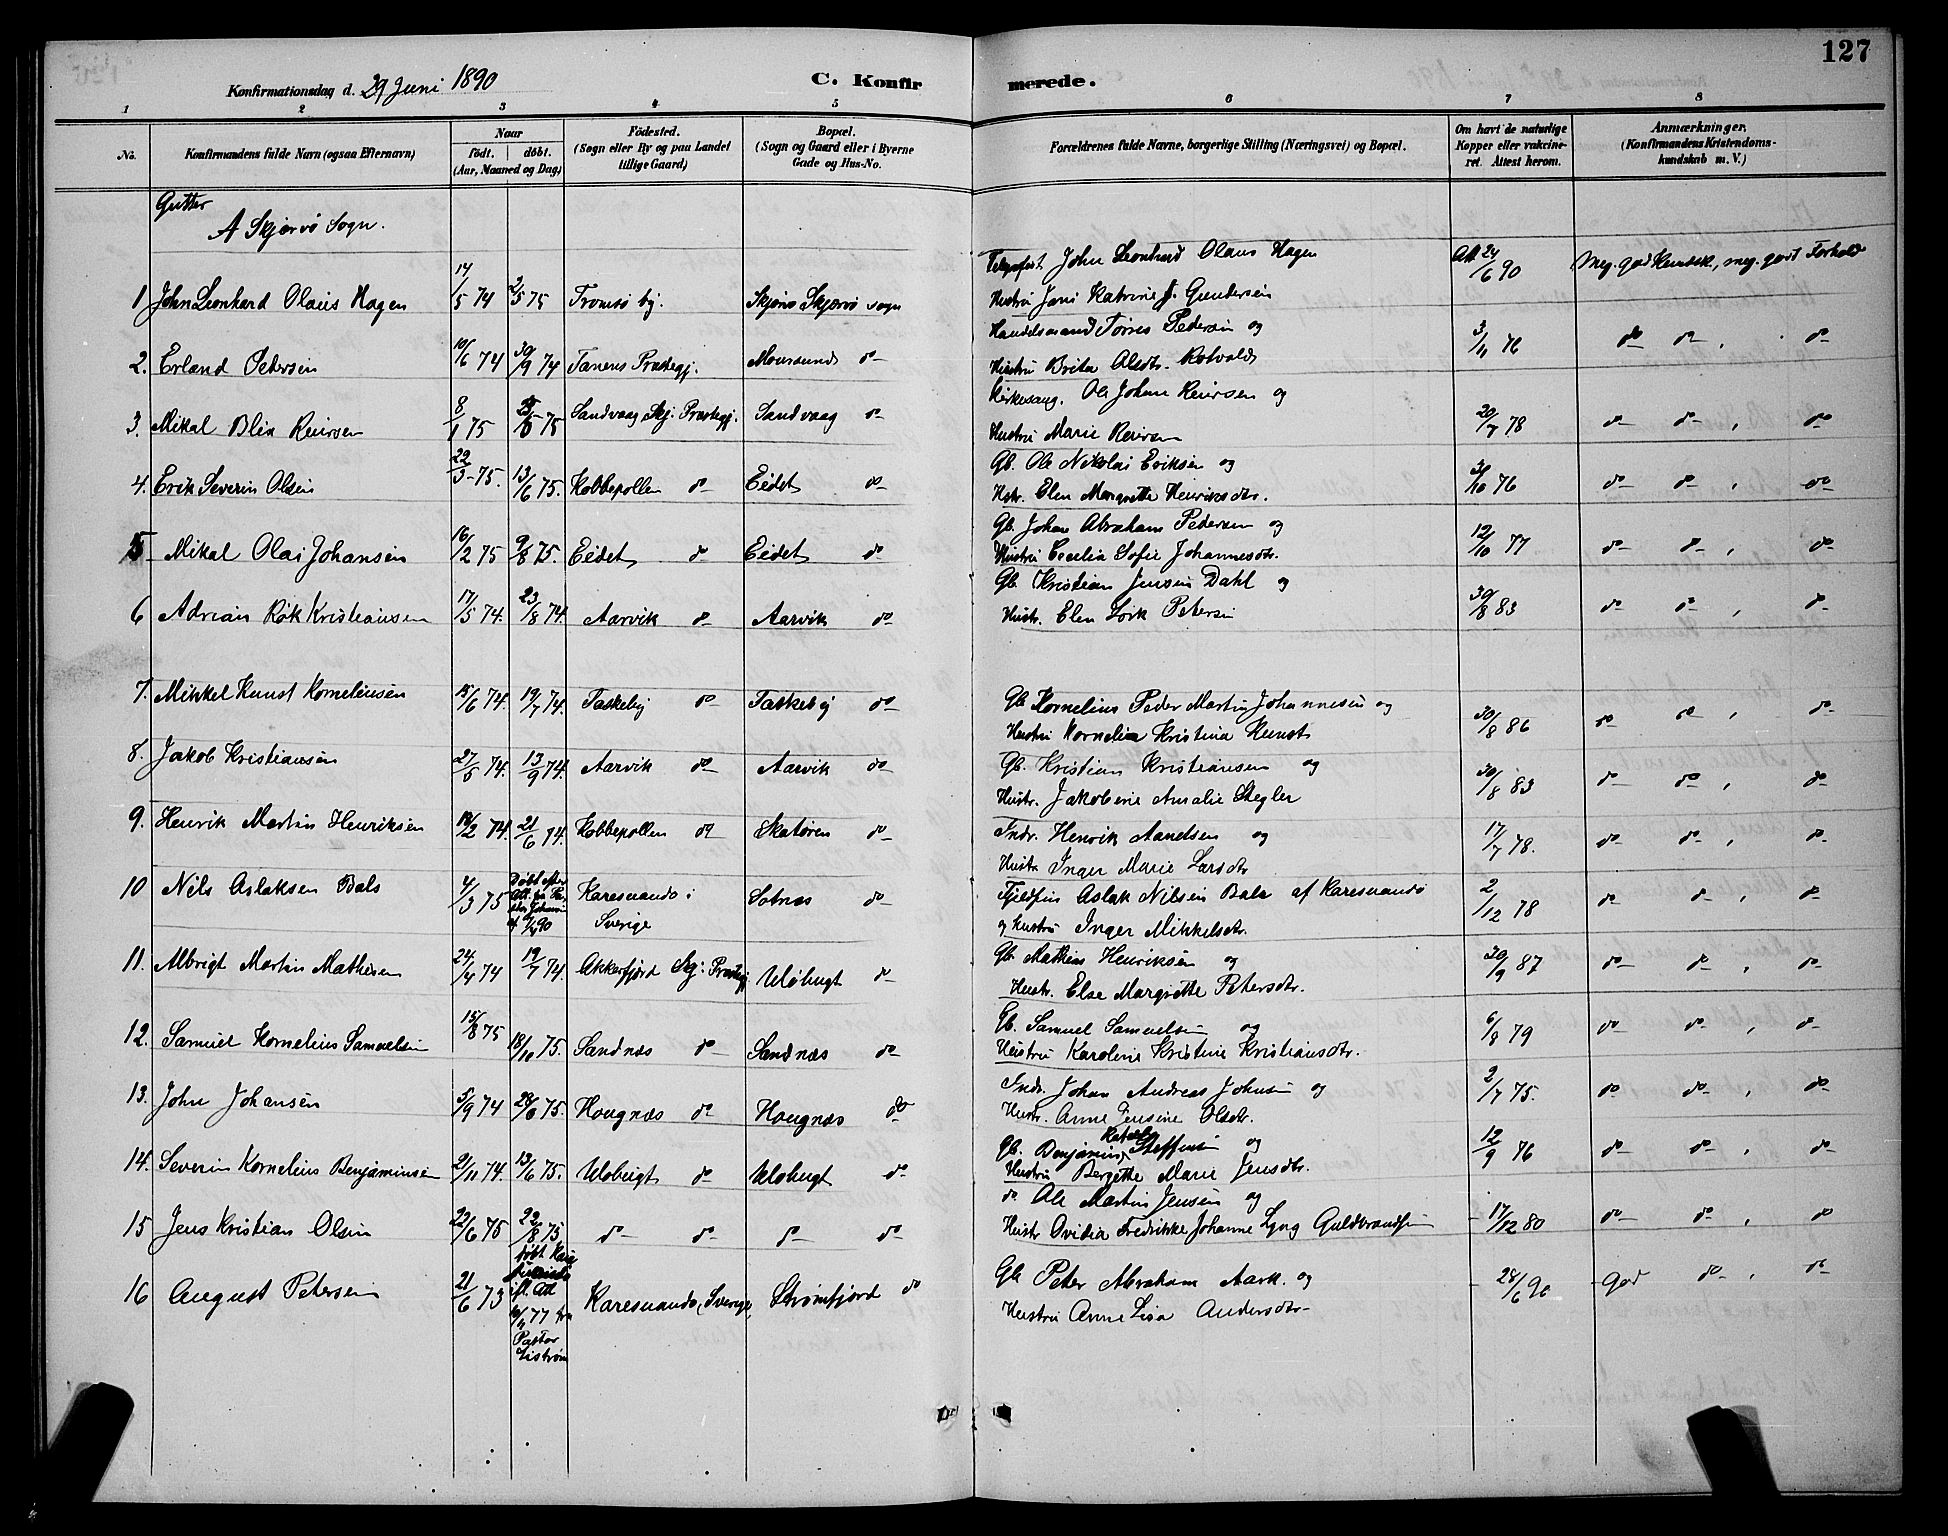 127
Konfirmationsdag d. 29 Juni 1890 C. Konfirmerede.
1 2 3 4 5 6 7 8
No. Konfirmandens fulde Navn (ogsaa Efternavn) Naar født. døbt. (Aar, Maaned og Dag) Fødested. (Sogn eller By og paa Landet tillige Gaard) Bopæl. (Sogn og Gaard eller i Byerne Gade og Hus-No. Forældrenes fulde Navne, borgerlige Stilling (Næringsvei) og Bopæl. Om havt de naturlige Kopper eller vakcineret. Attest herom. Anmærkninger. (Konfirmandens Kristendomskundskab m. V.)
Gutter
A Skjærvø Sogn.
1 John Leonhard Olaus Hagen 14/5 74 2/5 75 Tromsø by. Skjærvø Skjærvø sogn John Leonhard Olaus Hagen Hustru Jani Katrine J. Gundersen Att 24/6 90 Meg. god Kundsk, meg. godt Forhold
2. Erland Petersen 10/6 74 30/9 74 Tanens Præstegj. Maursund do Handelsmand Törres Pedersen og Hustru Brita Olsdtr. Rotvald 3/11 76 do do , do
3. Mikal Blix Reiersen 8/1 75 75 Sandvaag Skj: Præstegj. Sandvaag do Kirkesang. Ole Johan Reiersen og Hustru Marie Reiersen 20/7 78 do do , do
4. Erik Severin Olsen 22/3 75. 13/6 75. Kobbepollen do Eidet do Gb. Ole Nikolai Eriksen og Hstr. Elen Margrethe Henriksdtr. 3/10 76 do do , do
5 Mikal Olai Johansen 16/2 75 9/8 75. Eidet do Eidet do Gb. Johan Abraham Pedersen og Hustru Cecelia Sofie Johannesdtr. 12/10 77 do do , do
6 Adrian Rök Kristiansen 17/5 74. 23/8 74. Aarvik do Aarvik do Gb. Kristian Jensen Dahl og Hustr. Elen Lovk Petersen 30/8 83 do do , do
7. Mikkel Kunst Korneliusen 15/6 74. 19/7 74. Taskeby do Taskeby do Gb. Kornelius Peder Martin Johannesen og Hustru Kornelia Kristina Kunst 30/8 86 do do , do
8. Jakob Kristiansen 27/5 74. 13/9 74. Aarvik do Aarvik do Gb. Kristian Kristiansen og Hustr. Jakobine Amalie Stegler 30/8 83 do do , do
9. Henrik Martin Henriksen 18/2 74. 21/6 74. Kobbepollen do Skatøren do Indr. Henrik Aandsen og Hustr. Inger Marie Larsdtr 17/7 78. do do , do
10 Nils Aslaksen Bals 4/3 75 Døbt efter Att. fra Johansen af 90 Karesuando i Sverige Sotnæs do Fjeldfin Aslak Nilsen Bals af Karesuando og hustru Inger Mikkelsdtr. 2/12 78 do do , do
11. Albrigt Martin Mathisen 24/4 74 19/7 74. Akkarfjord Skj: Præstegj Uløbugt do Gb. Mathias Henriksen og Hustr. Else Margrethe Petersdtr. 30/9 87 do do , do
12. Samuel Kornelius Samuelsen 15/8 75 18/10 75. Sandnæs do Sandnæs do Gb. Samuel Samuelsen og Hustru Karoline Kristine Kristiansdtr. 6/8 79 do do , do
13. John Johansen 5/9 74 20/6 75. Hougnæs do Hougnæs do Indr. Johan Andreas Johnsen og Hustr. Anne Jensine Olsdtr. 2/7 75. do do , do
14. Severin Kornelius Benjaminsen 2/11 74. 13/6 75. Uløbugt do Uløbugt do Gb. Benjamin Steffensen og Hustru Bergette Marie Jensdtr. 12/9 76 do do , do
15 Jens Kristian Olsen 22/6 75 22/8 75. do do do do do Ole Martin Jensen og Hustr Ovidia Fredrikke Johanne Lyng Guldbrandsen 17/12 80 do do , do
16 August Petersen 21/6 73 døbt 77 fra Pastor Liström Karesuando, Sverige, Strømfjord do Gb Peter Abraham Aark. og Hustru Anne Lisa Andersdtr 28/6 90 god do , do